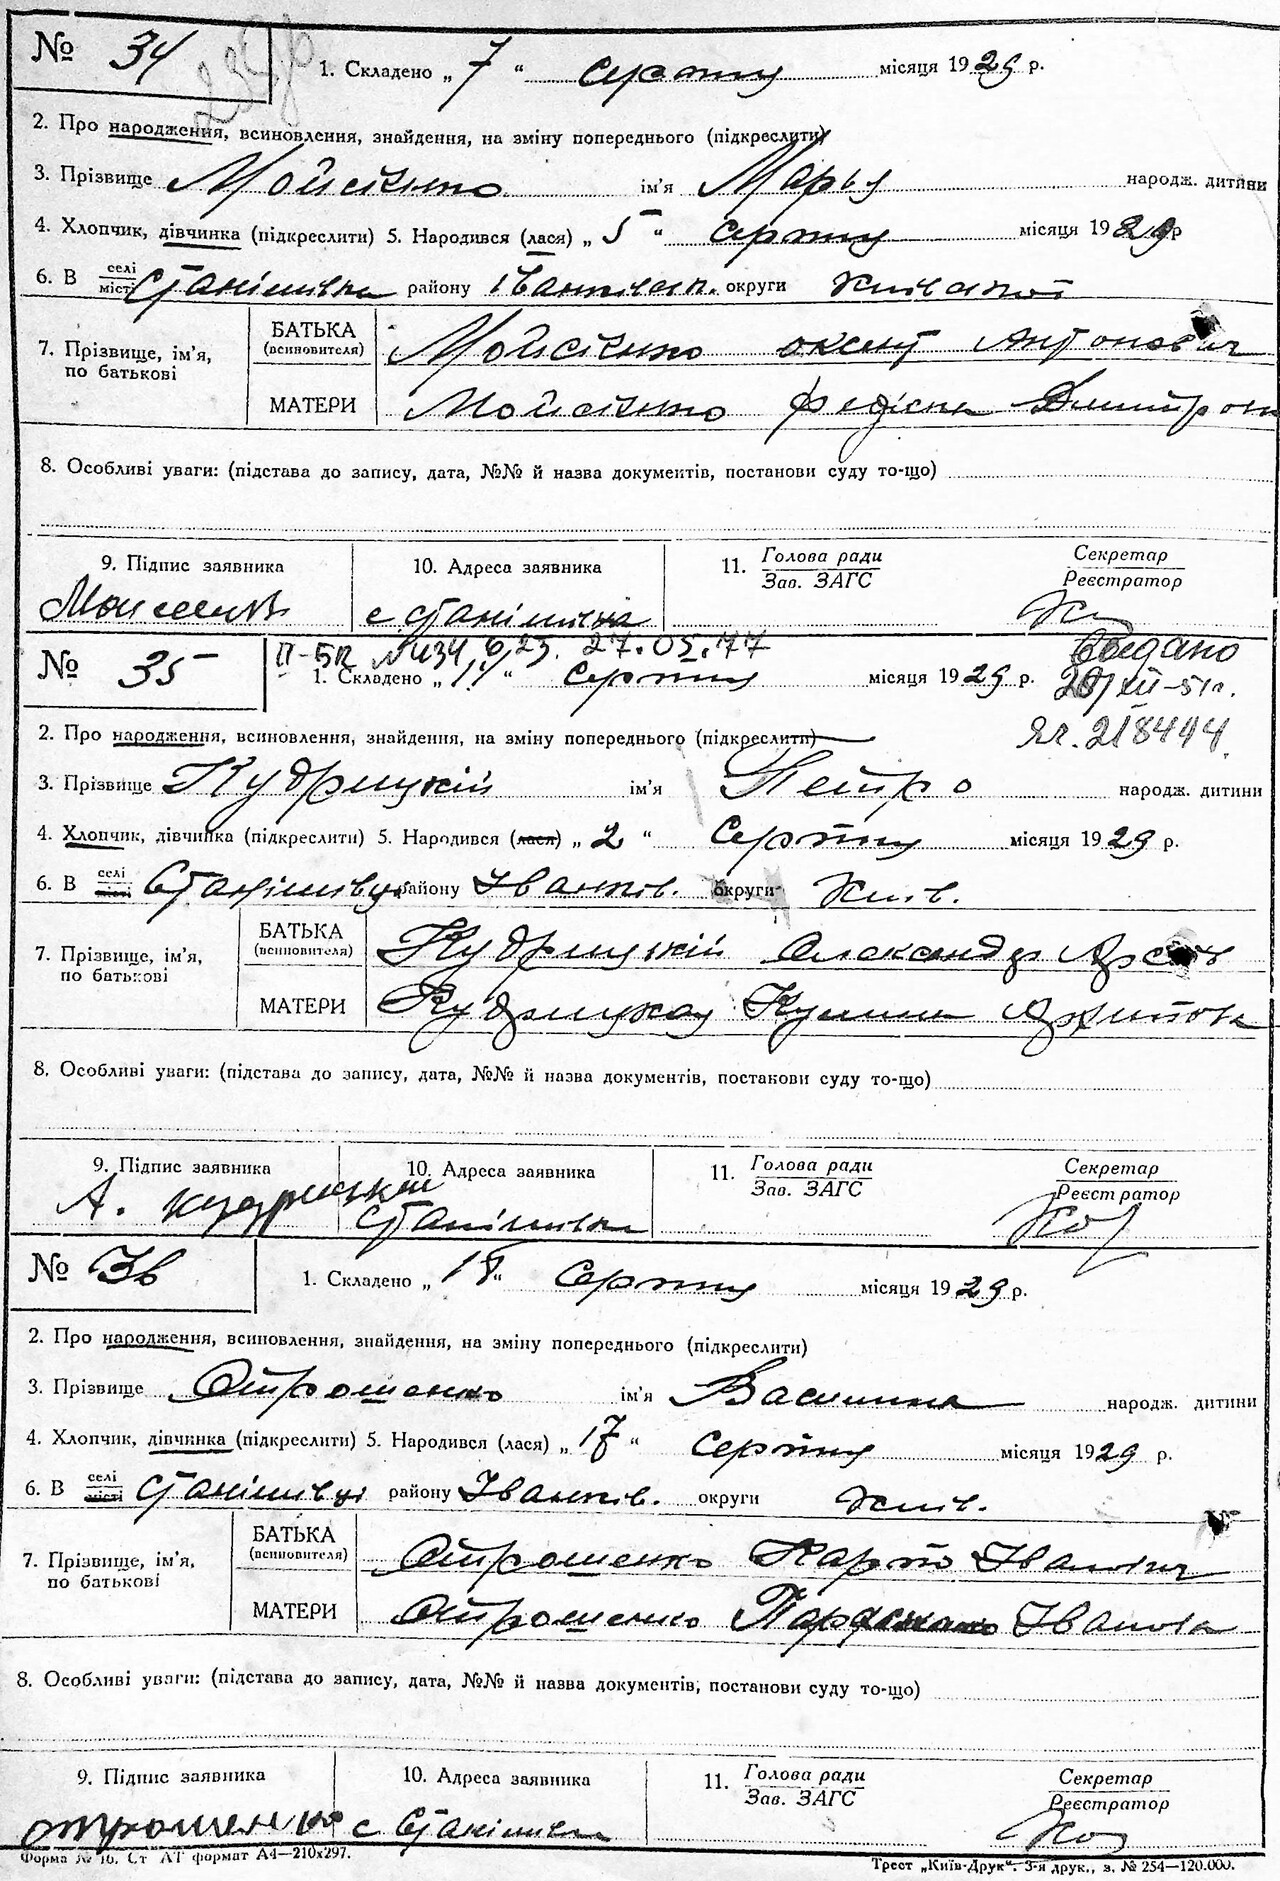 № 34
1. Складено „ 7 “ серпня місяця 1929 р.
2. Про народження, всиновлення, знайдення, на зміну попереднього (підкреслити)
3. Прізвище Мойсієнко ім'я Марья народж. дитини
4. Хлопчик, дівчинка (підкреслити) 5. Народився (лася) „ 5 “ серпня місяця 1929 р
6. В селі місті Станішівка району Іванківськ. округи Київської
7. Прізвище, ім'я, по батькові
БАТЬКА (всиновителя) Мойсієнко Антонович
МАТЕРИ Мойсієнко
8. Особливі уваги: (підстава до запису, дата, №№ й назва документів, постанови суду то-що)
9. Підпис заявника 10. Адреса заявника 11. Голова ради Зав. ЗАГС Секретар Реєстратор
с Станішівка
27.05.77
№ 35
1. Складено „ 11 “ серпня місяця 1929 р.
218444
2. Про народження, всиновлення, знайдення, на зміну попереднього (підкреслити)
3. Прізвище Кудрицький ім'я Петро народж. дитини
4. Хлопчик, дівчинка (підкреслити) 5. Народився (лася) „ 2 “ Серпня місяця 1929 р.
6. В селі місті Станішівці району Іванків. округи Київ.
7. Прізвище, ім'я, по батькові
БАТЬКА (всиновителя) Кудрицький Олександр
МАТЕРИ Кудрицкая
8. Особливі уваги: (підстава до запису, дата, №№ й назва документів, постанови суду то-що)
9. Підпис заявника 10. Адреса заявника 11. Голова ради Зав. ЗАГС Секретар Реєстратор
А. Кудрицький Станішівка
№ 36
1. Складено „ 18 “ Серпня місяця 1929 р.
2. Про народження, всиновлення, знайдення, на зміну попереднього (підкреслити)
3. Прізвище Отрошенко ім'я Василина народж. дитини
4. Хлопчик, дівчинка (підкреслити) 5. Народився (лася) „ 17 “ Серпня місяця 1929 р.
6. В селі місті Станішівці району Іванків. округи Київ.
7. Прізвище, ім'я, по батькові
БАТЬКА (всиновителя) Отрошенко Карпо Іванович
МАТЕРИ Отрошенко Іванова
8. Особливі уваги: (підстава до запису, дата, №№ й назва документів, постанови суду то-що)
9. Підпис заявника 10. Адреса заявника 11. Голова ради Зав. ЗАГС Секретар Реєстратор
отрошенко с Станішівка
Форма № 16. Ст АТ формат А4—210х297.
Трест „Київ-Друк“. 3-я друк., з. № 254—120.000.